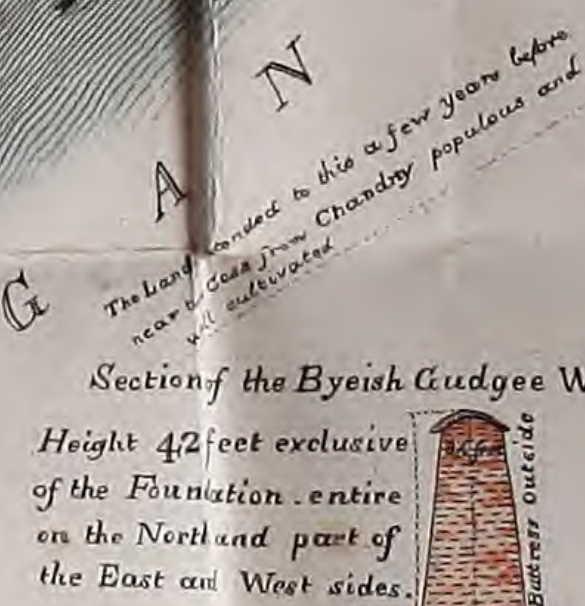 G A N
The Land tended to this a few years before
near Coss from Chandry populous and
well cultivated
Section of the Byeish Gudgee W
Height 42 feet exclusive
of the Foundation . entire
on the North and part of
the East and West sides.
Butress Outside